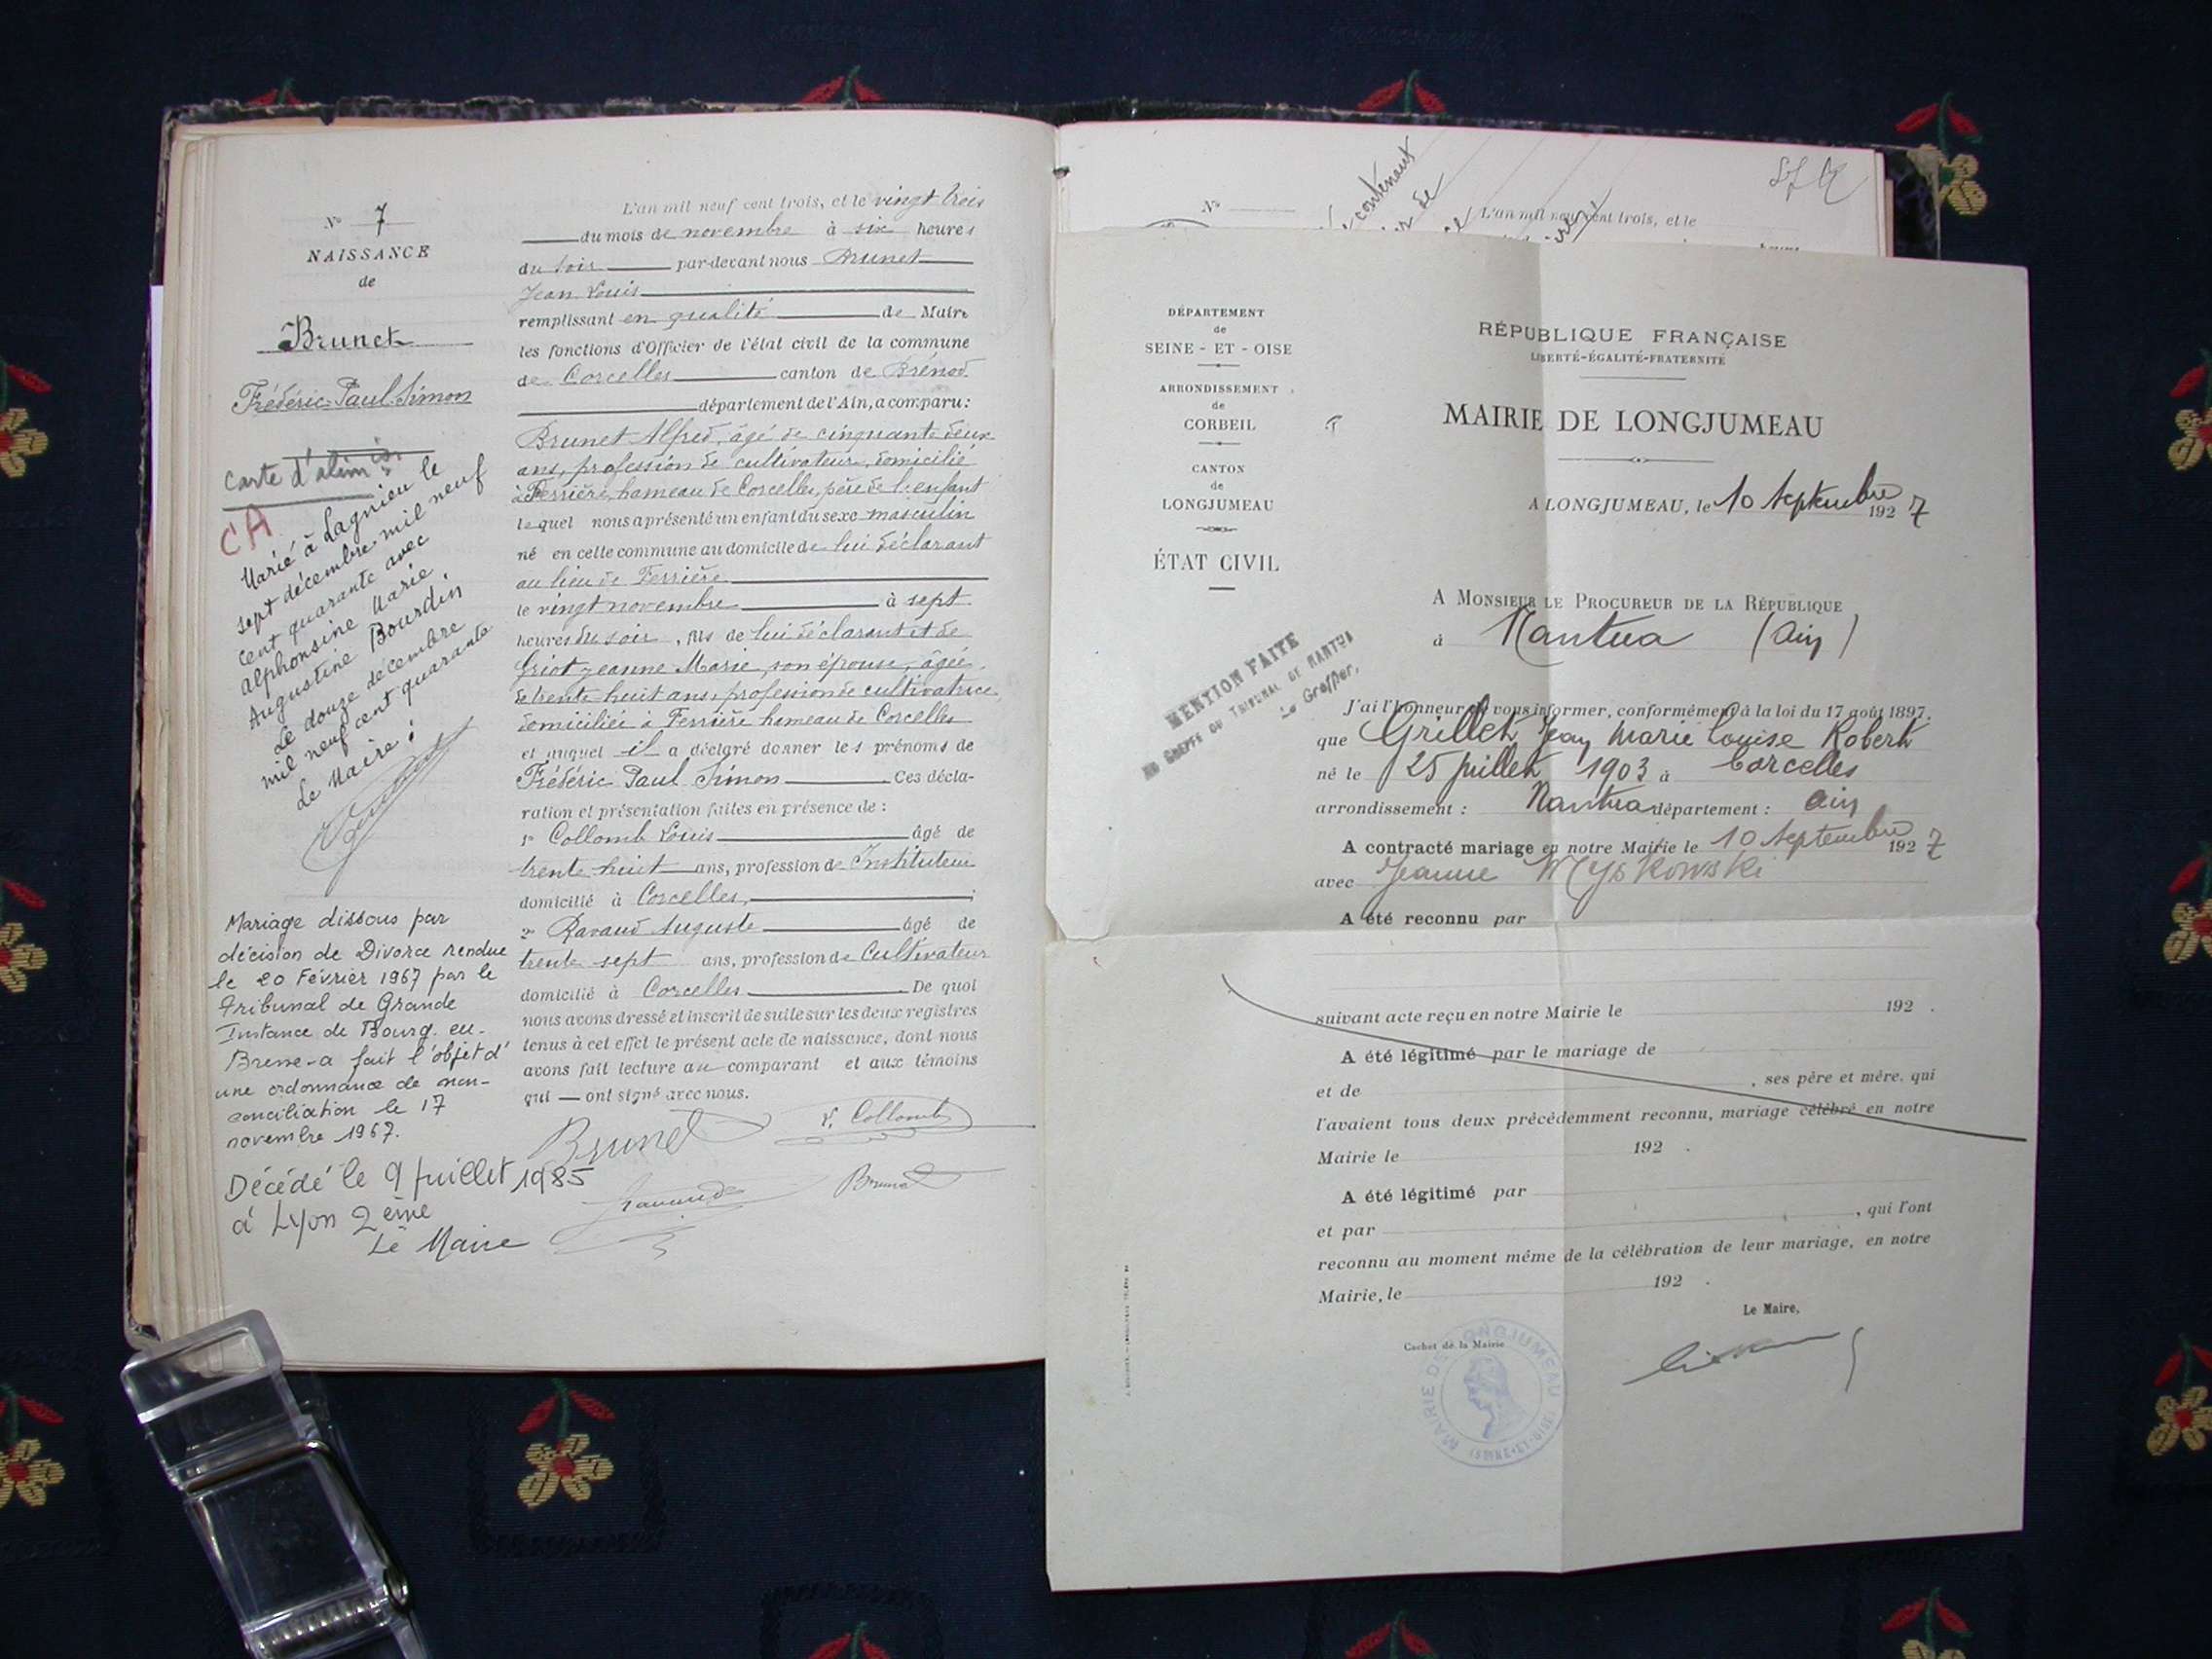 N° 7
NAISSANCE
de
Brunet
Frédéric Paul Simon
Carte d'alim
CA
Marié à Lagnieu le
sept décembre mil neuf
cent quarante avec
Alphonsine Marie
Augustine Bourdin
Le douze décembre
mil neuf cent quarante
Le Maire :
Mariage dissous par
décision de Divorce rendue
le 20 Février 1967 par le
Tribunal de Grande
Instance de Bourg. en-
Bresse - a fait l'objet d'
une ordonnance de non-
conciliation le 17
novembre 1967.
Décédé le 9 juillet 1985
à Lyon 2ème
Le Maire
L'an mil neuf cent trois, et le vingt trois
du mois de novembre à six heures
du soir par-devant nous Brunet
Jean Louis
remplissant en qualité de Maire
les fonctions d'Officier de l'état civil de la commune
de Corcelles canton de Brénod
département de l'Ain, a comparu :
Brunet Alfred, âgé de cinquante deux
ans, profession de cultivateur, domicilié
à Ferrière, hameau de Corcelles, père de l'enfant
lequel nous a présenté un enfant du sexe masculin
né en cette commune au domicile de lui déclarant
au lieu de Ferrière
le vingt novembre à sept
heures du soir, fils de lui déclarant et de
Griot Jeanne Marie, son épouse, âgée
de trente huit ans, profession de cultivatrice,
domiciliée à Ferrière hameau de Corcelles
et auquel il a déclaré donner les prénoms de
Frédéric Paul Simon Ces décla-
ration et présentation faites en présence de :
1° Collomb Louis âgé de
trente huit ans, profession de Instituteur
domicilié à Corcelles, ;
2° Ravaud Auguste âgé de
trente sept ans, profession de Cultivateur
domicilié à Corcelles De quoi
nous avons dressé et inscrit de suite sur les deux registres
tenus à cet effet le présent acte de naissance, dont nous
avons fait lecture au comparant et aux témoins
qui ont signé avec nous.
Brunet L. Collomb
Ravaud Brunet
N°
contenant
de
L'an mil neuf cent trois, et le
DÉPARTEMENT
de
SEINE - ET - OISE
ARRONDISSEMENT
de
CORBEIL
CANTON
de
LONGJUMEAU
ÉTAT CIVIL
MENTION FAITE
AU GREFFE DU TRIBUNAL DE NANTUA
Le Greffier,
RÉPUBLIQUE FRANÇAISE
LIBERTÉ-ÉGALITÉ-FRATERNITÉ
MAIRIE DE LONGJUMEAU
A LONGJUMEAU, le 10 Septembre 1927
A MONSIEUR LE PROCUREUR DE LA RÉPUBLIQUE
à Nantua (Ain)
J'ai l'honneur de vous informer, conformément à la loi du 17 août 1897,
que Grillet Jean Marie Louise Robert
né le 25 juillet 1903 à Corcelles
arrondissement : Nantua département : Ain
A contracté mariage en notre Mairie le 10 Septembre 1927
avec Jeanne Myskowski
A été reconnu par
suivant acte reçu en notre Mairie le 192 .
A été légitimé par le mariage de
et de , ses père et mère, qui
l'avaient tous deux précédemment reconnu, mariage célébré en notre
Mairie le 192 .
A été légitimé par
et par , qui l'ont
reconnu au moment même de la célébration de leur mariage, en notre
Mairie, le 192 .
Le Maire,
Cachet de la Mairie
MAIRIE DE LONGJUMEAU
(SEINE-ET-OISE)